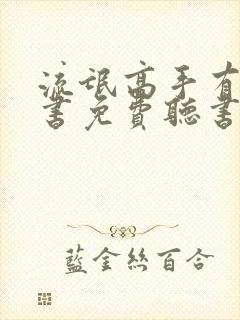 流氓高手有
书免费聽书
藍金丝百合